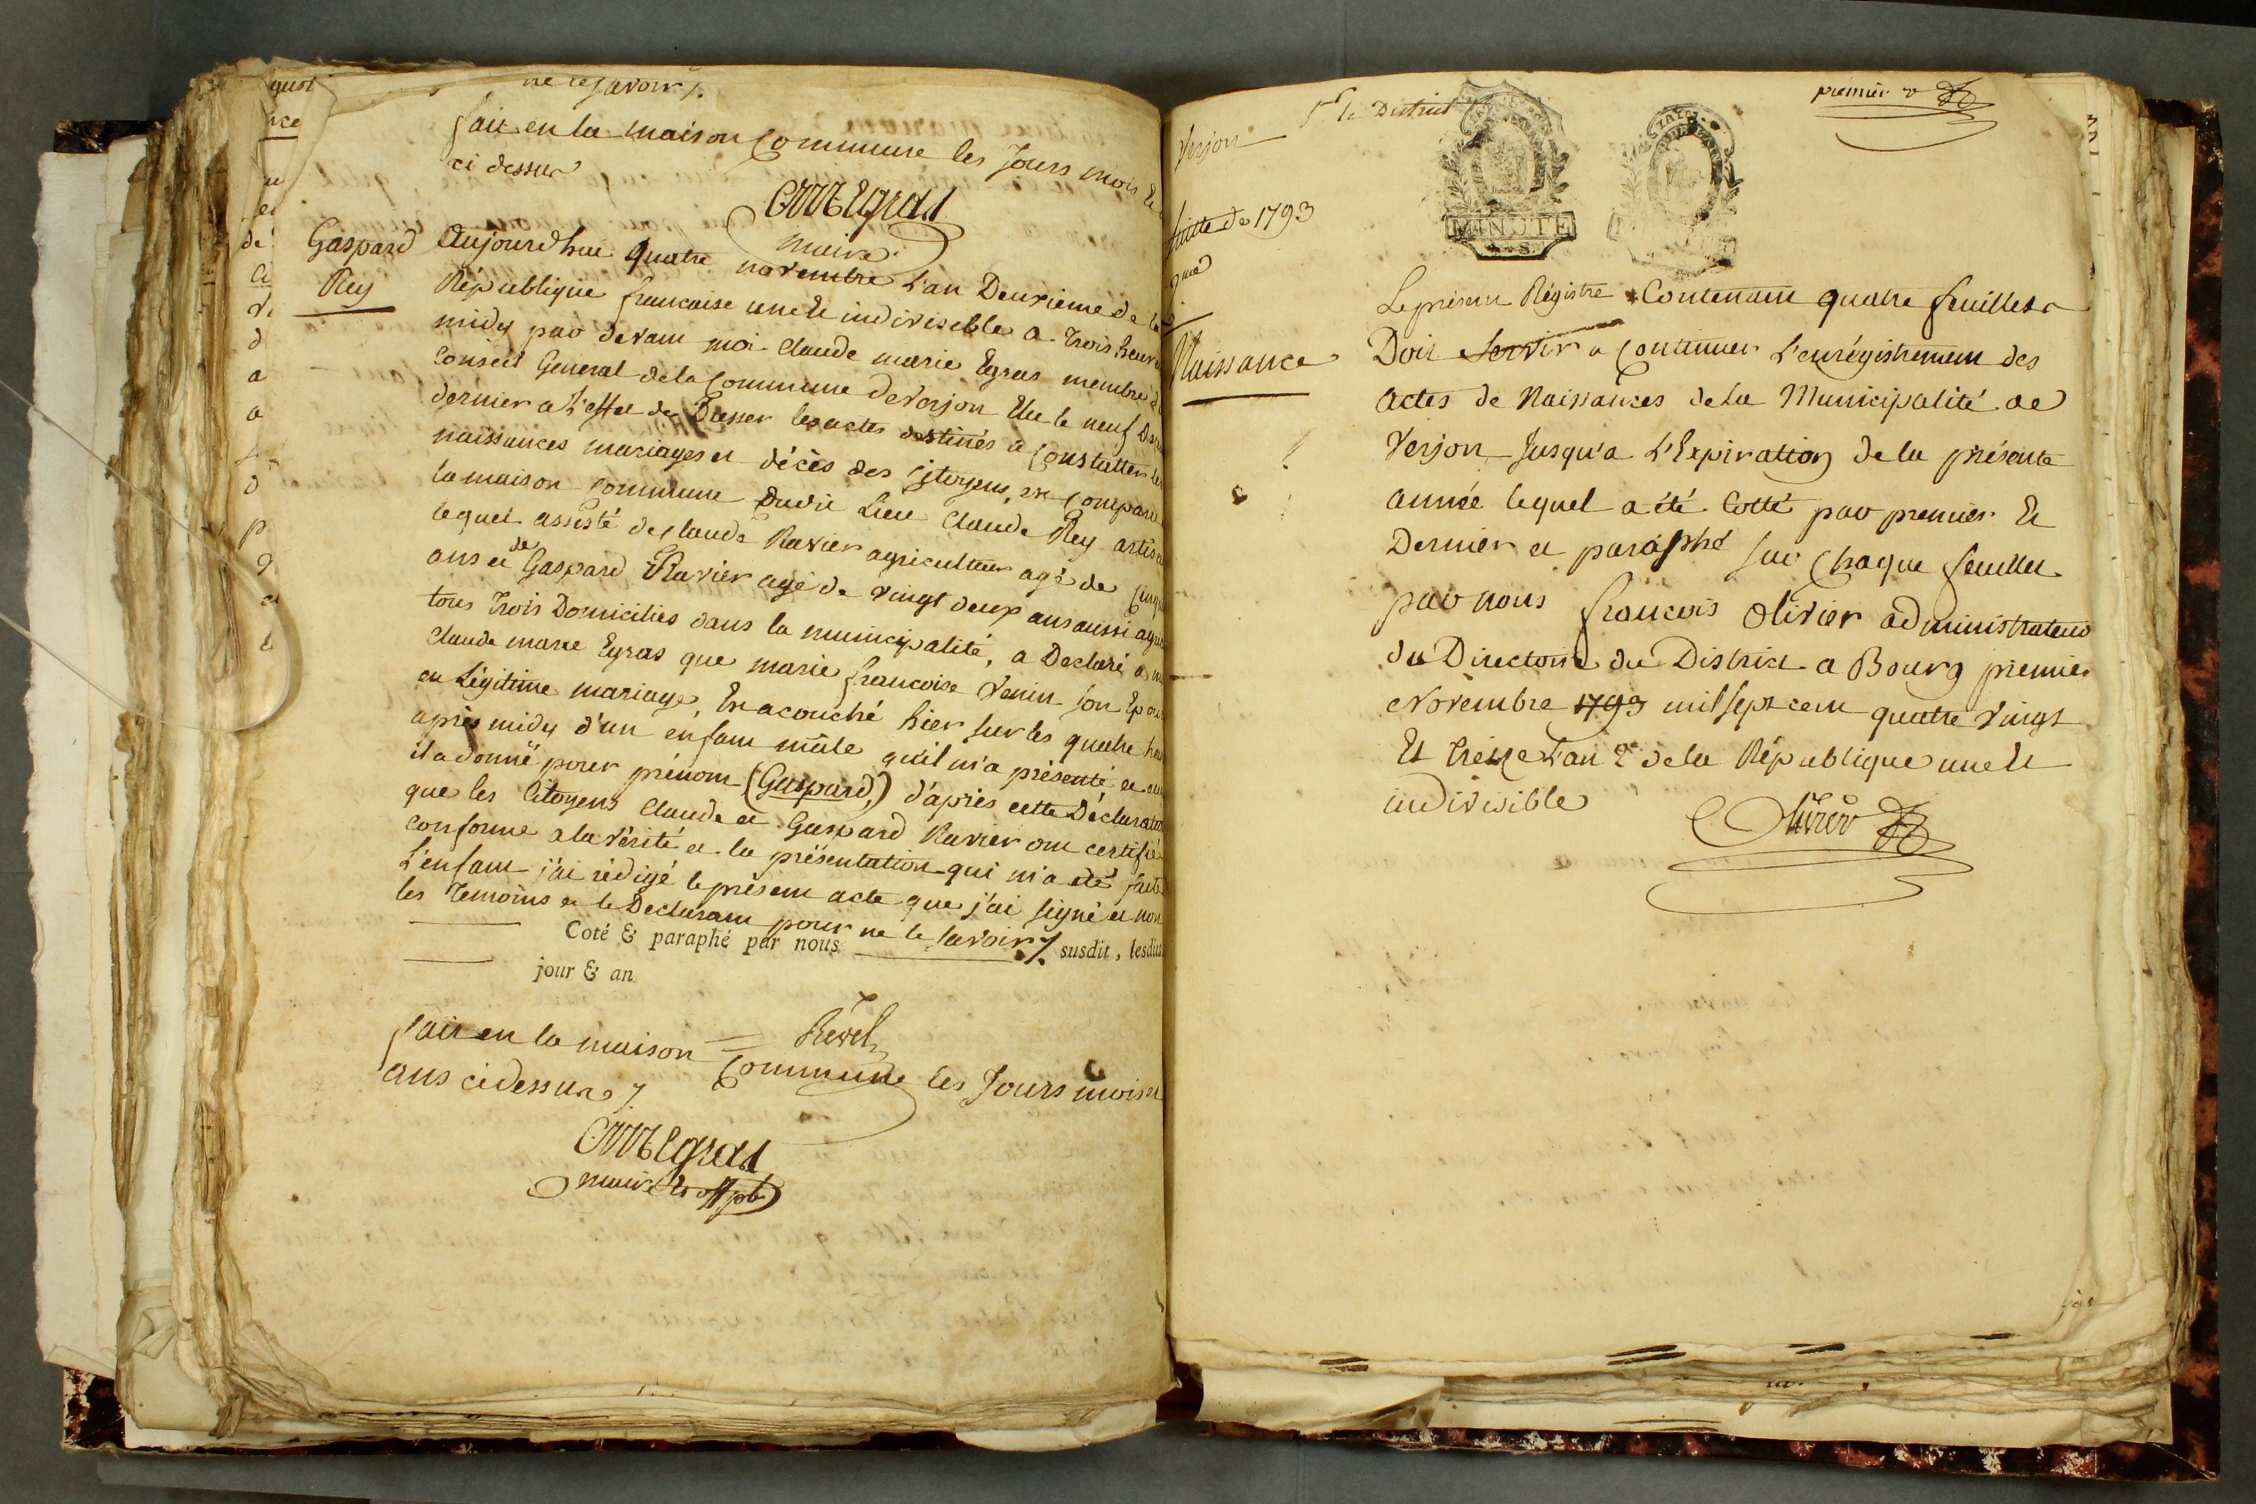 ne le savoir /.
fait en la maison Commune les Jours mois Et
ci dessus
CMEgras
maire
Gaspard
Rey
Aujourdhui quatre novembre L'an Deuxieme de la
République francaise une Et indivisible a trois heures
midy par devant moi Claude marie Egras membre d
Conseil General de la Commune de Verjon Elu le neuf
dernier a L'effet de Dresser les actes destinés a Constatter les
naissances mariages et décès des Citoyens, Est Comparu
la maison commune dudit Lieu Claude Rey
lequel assisté de Claude Ravier agriculteur agé de
ans et de Gaspard Ravier agé de vingt deux ans aussi
tous trois Domiciliés dans la municipalité, a Declaré a
Claude marie Egras que marie francoise Venin son
en Légitime mariage, Est acouché hier sur les quatre
après midy d'un enfant mâle qu'il m'a présenté et
il a donné pour prénom (Gaspard,) d'après cette Déclaration
que les Citoyens Claude et Gaspard Ravier ont certifié
conforme a la vérité et la présentation qui m'a été faite
L'enfant j'ai rédigé le présent acte que j'ai signé et non
les temoins et le Declarant pour ne le savoir /.
Coté & paraphé par nous susdit, lesdits
jour & an
Revel
fait en la maison Commune les Jours mois et
ans ci dessus /.
CMEgras
maire et off pb
Verjon
pr le District
premier
suitte de 1793
Naissance
MINUTE
Le présent Régistre Contenant quatre feuillets
Doit Servir a Continuer L'enrégistrement des
actes de Naissances de La Municipalité de
Verjon Jusqu'a L'Expiration de la présente
année lequel a été Cotté par premier Et
Dernier et paraphé sur Chaque feuillet
par nous francois Olivier administrateur
du Directoire du District a Bourg premier
Novembre 1793 mil sept cent quatre vingt
Et treize L'an 2e de la République une Et
indivisible
Olivier